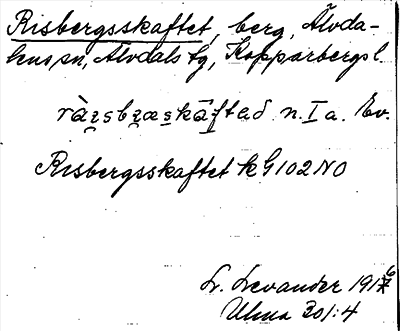 Risbergsskaftet, berg, Älvda-
lens sn, Älvdals tg, Kopparbergs l.
n. I a. Ev.
Risbergsskaftet k G 102 NO
L. Levander 1916
Ulma 301:4